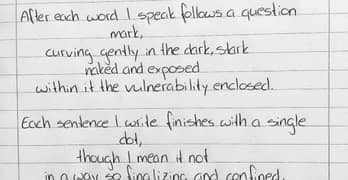 After each word I speak follows a question
mark,
curving gently in the dark, stark
naked and exposed
within it the vulnerability enclosed.
Each sentence I write finishes with a single
dot,
though I mean it not
in a way so finalizing and confined.